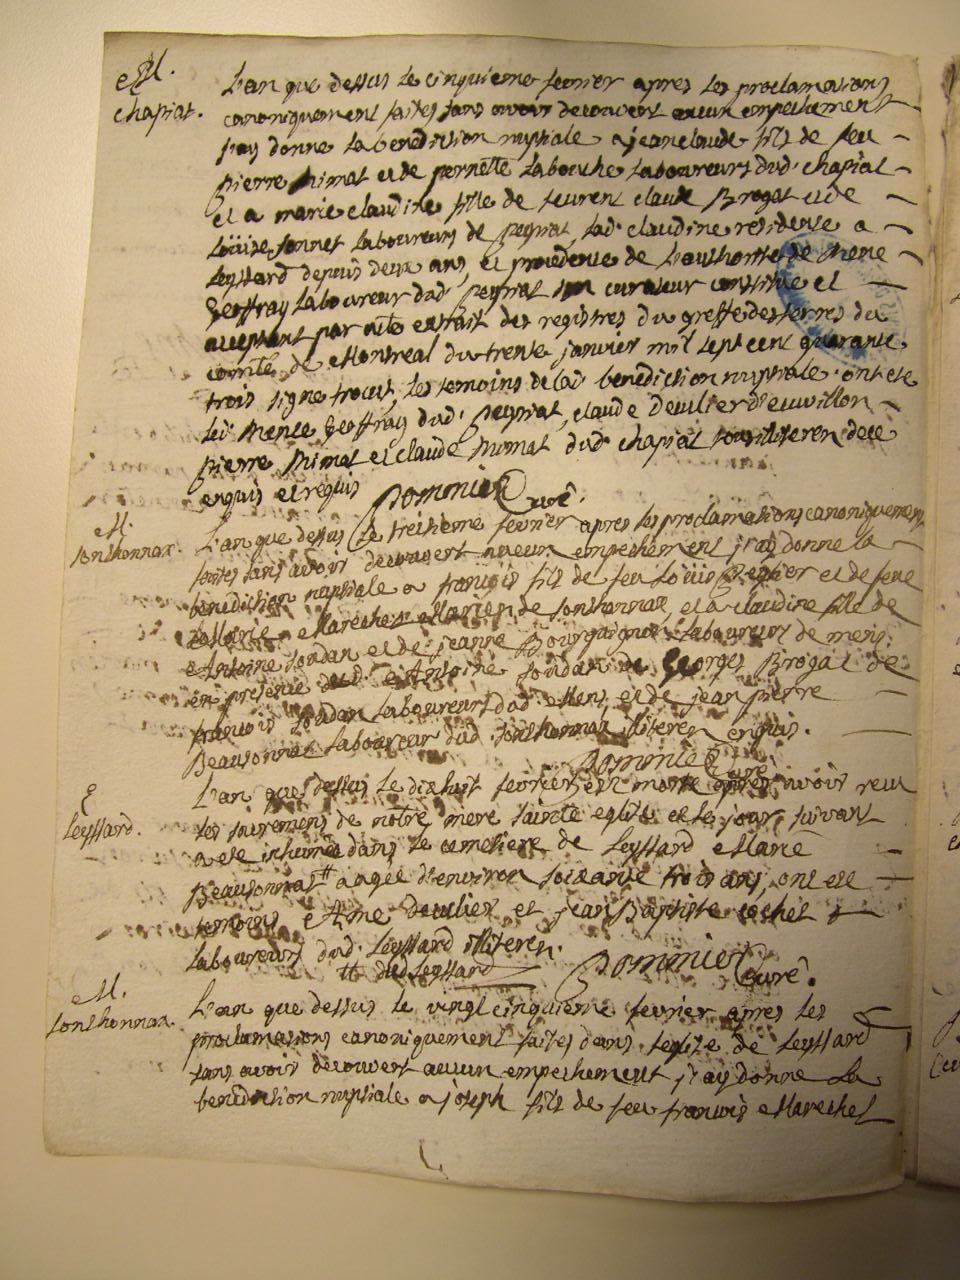 M.
chapiat.
L'an que dessus le cinquieme fevrier apres les proclamations
canoniquement faites sans avoir decouvert aucun empechement
j'ay donne la benediction nuptiale a jean claude fils de feu
pierre mimat et de pernette Labouche Laboureurs dud. chapiat
et a marie claudine fille de feurent claude Brogat et de
Loüise sonnet Laboureurs de peyriat, lad. claudine residente a
Leyssard depuis deux ans, et procedente de l'authorité de
geoffray Laboureur dud. peyriat son curateur constitue et
acceptant par acte extrait des registres du greffe des terres du
comté de Montreal du trente janvier mil sept cent quarante
trois signe trocu, les temoins de lad. benediction nuptiale ont ete
led. geoffray dud. peyriat, claude deulier d'euvillon
pierre mimat et claude mimat dud. chapiat tous illiteren de ce
enquis et requis Pommier Curé.
M.
sonthonnax.
L'an que dessus le treisieme fevrier apres les proclamations canoniquement
faites sans avoir decouvert aucun empechement j'ay donne la
benediction nuptiale a françois fils de feu Loüis et de feue
Marie Mareschet de sonthonnax, et a claudine fille de
Antoine Joudan et de jeanne Bourguignat Laboureurs de mens
en presence dud. Antoine Joudan de georges Brogat de
françois Joudan Laboureurs dud. Mens, et de jean pierre
Beausonnat Laboureur dud. sonthonnax illiteren enquis.
Pommier Curé
E
Leyssard.
L'an que dessus le dixhuit fevrier est morte apres avoir receu
les sacremens de notre mere sainte eglise et le jour suivant
a ete inhumée dans le cemetiere de Leyssard Marie
Beausonnat # aagée d'environ soixante trois ans, ont ete
temoins Aime deulier et jean Baptiste cochet
Laboureurs dud. Leyssard illiteren.
# dud Leyssard Pommier Curé.
M.
sonthonnax.
L'an que dessus le vingt cinquieme fevrier apres les
proclamations canoniquement faites dans l'eglise de Leyssard
sans avoir decouvert aucun empechement j'ay donne la
benediction nuptiale a joseph fils de feu françois Mareschet